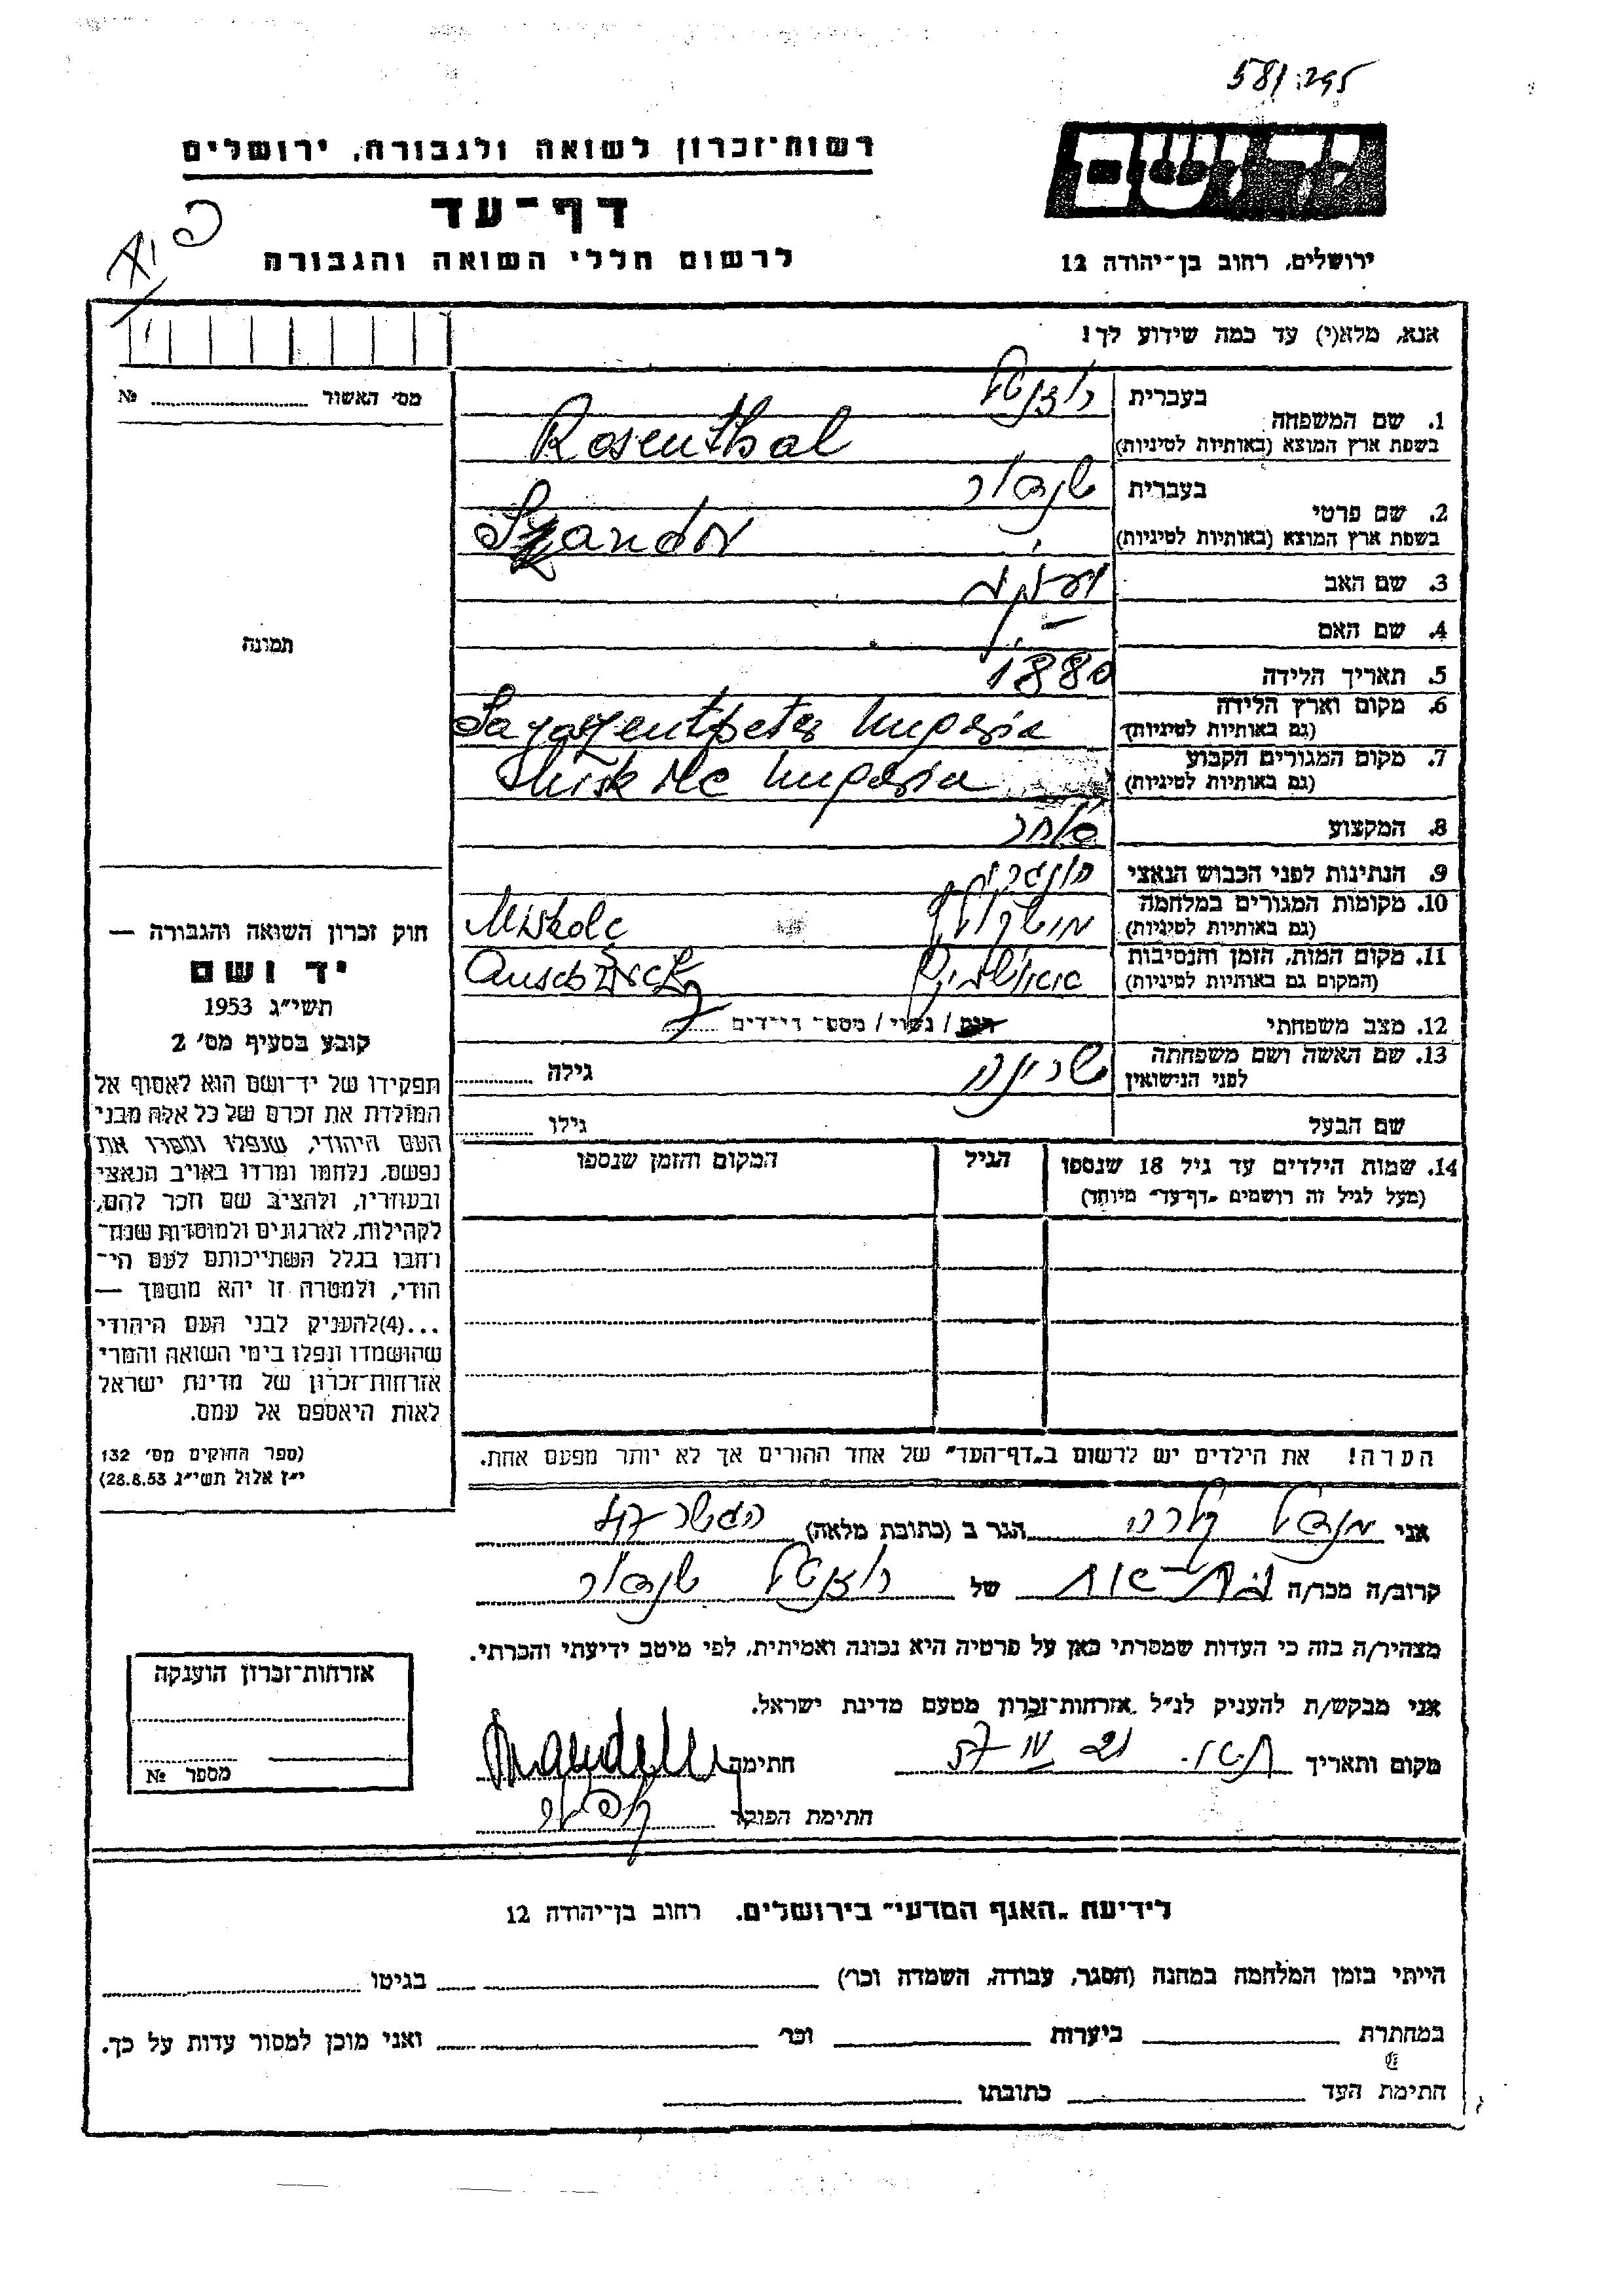 581:295
יד ושם
רשות־זכרון לשואה ולגבורה, ירושלים
דף־עד
לרשום חללי השואה והגבורה
ירושלים, רחוב בן־יהודה 12
אנא, מלא(י) עד כמה שידוע לך!
מס׳ האשור № ........
תמונה
1. שם המשפחה
בעברית רוזנטל
בשפת ארץ המוצא (באותיות לטיניות) Rosenthal
2. שם פרטי
בעברית שנדור
בשפת ארץ המוצא (באותיות לטיניות) Szandor
3. שם האב
4. שם האם —
5. תאריך הלידה 1880
6. מקום וארץ הלידה
(גם באותיות לטיניות) Sajoszentpeter Hungaria
7. מקום המגורים הקבוע
(גם באותיות לטיניות) Miskolc Hungaria
8. המקצוע סוחר
9. הנתינות לפני הכבוש הנאצי הונגרי
10. מקומות המגורים במלחמה
(גם באותיות לטיניות) מישקולץ Miskolc
11. מקום המות, הזמן והנסיבות
(המקום גם באותיות לטיניות) אאושוויץ
12. מצב משפחתי רוק / נשוי / מספר הילדים
13. שם האשה ושם משפחתה
לפני הנישואין שרינה גילה ........
שם הבעל גילו ........
14. שמות הילדים עד גיל 18 שנספו הגיל המקום והזמן שנספו
(מעל לגיל זה רושמים „דף־עד״ מיוחד)
הערה! את הילדים יש לרשום ב„דף־העד״ של אחד ההורים אך לא יותר מפעם אחת.
חוק זכרון השואה והגבורה —
יד ושם
תשי״ג 1953
קובע בסעיף מס׳ 2
תפקידו של יד־ושם הוא לאסוף אל
המולדת את זכרם של כל אלה מבני
העם היהודי, שנפלו ומסרו את
נפשם, נלחמו ומרדו באויב הנאצי
ובעוזריו, ולהציב שם וזכר להם,
לקהילות, לארגונים ולמוסדות שנח־
רבו בגלל השתייכותם לעם הי־
הודי, ולמטרה זו יהא מוסמך —
...(4) להעניק לבני העם היהודי
שהושמדו ונפלו בימי השואה והמרי
אזרחות־זכרון של מדינת ישראל
לאות היאספם אל עמם.
(ספר החוקים מס׳ 132
י״ז אלול תשי״ג 28.8.53)
אני מנדל קלרה הגר ב (כתובת מלאה)
קרוב/ה מכר/ה של רוזנטל שנדור
מצהיר/ה בזה כי העדות שמסרתי כאן על פרטיה היא נכונה ואמיתית, לפי מיטב ידיעתי והכרתי.
אני מבקש/ת להעניק לנ״ל אזרחות־זכרון מטעם מדינת ישראל.
מקום ותאריך חתימה
חתימת הפוקד
אזרחות־זכרון הוענקה
מספר №
לידיעת „האגף המדעי״ בירושלים, רחוב בן־יהודה 12
הייתי בזמן המלחמה במחנה (הסגר, עבודה, השמדה וכו׳) בגיטו
במחתרת ביערות וכו׳ ואני מוכן למסור עדות על כך.
חתימת העד כתובתו